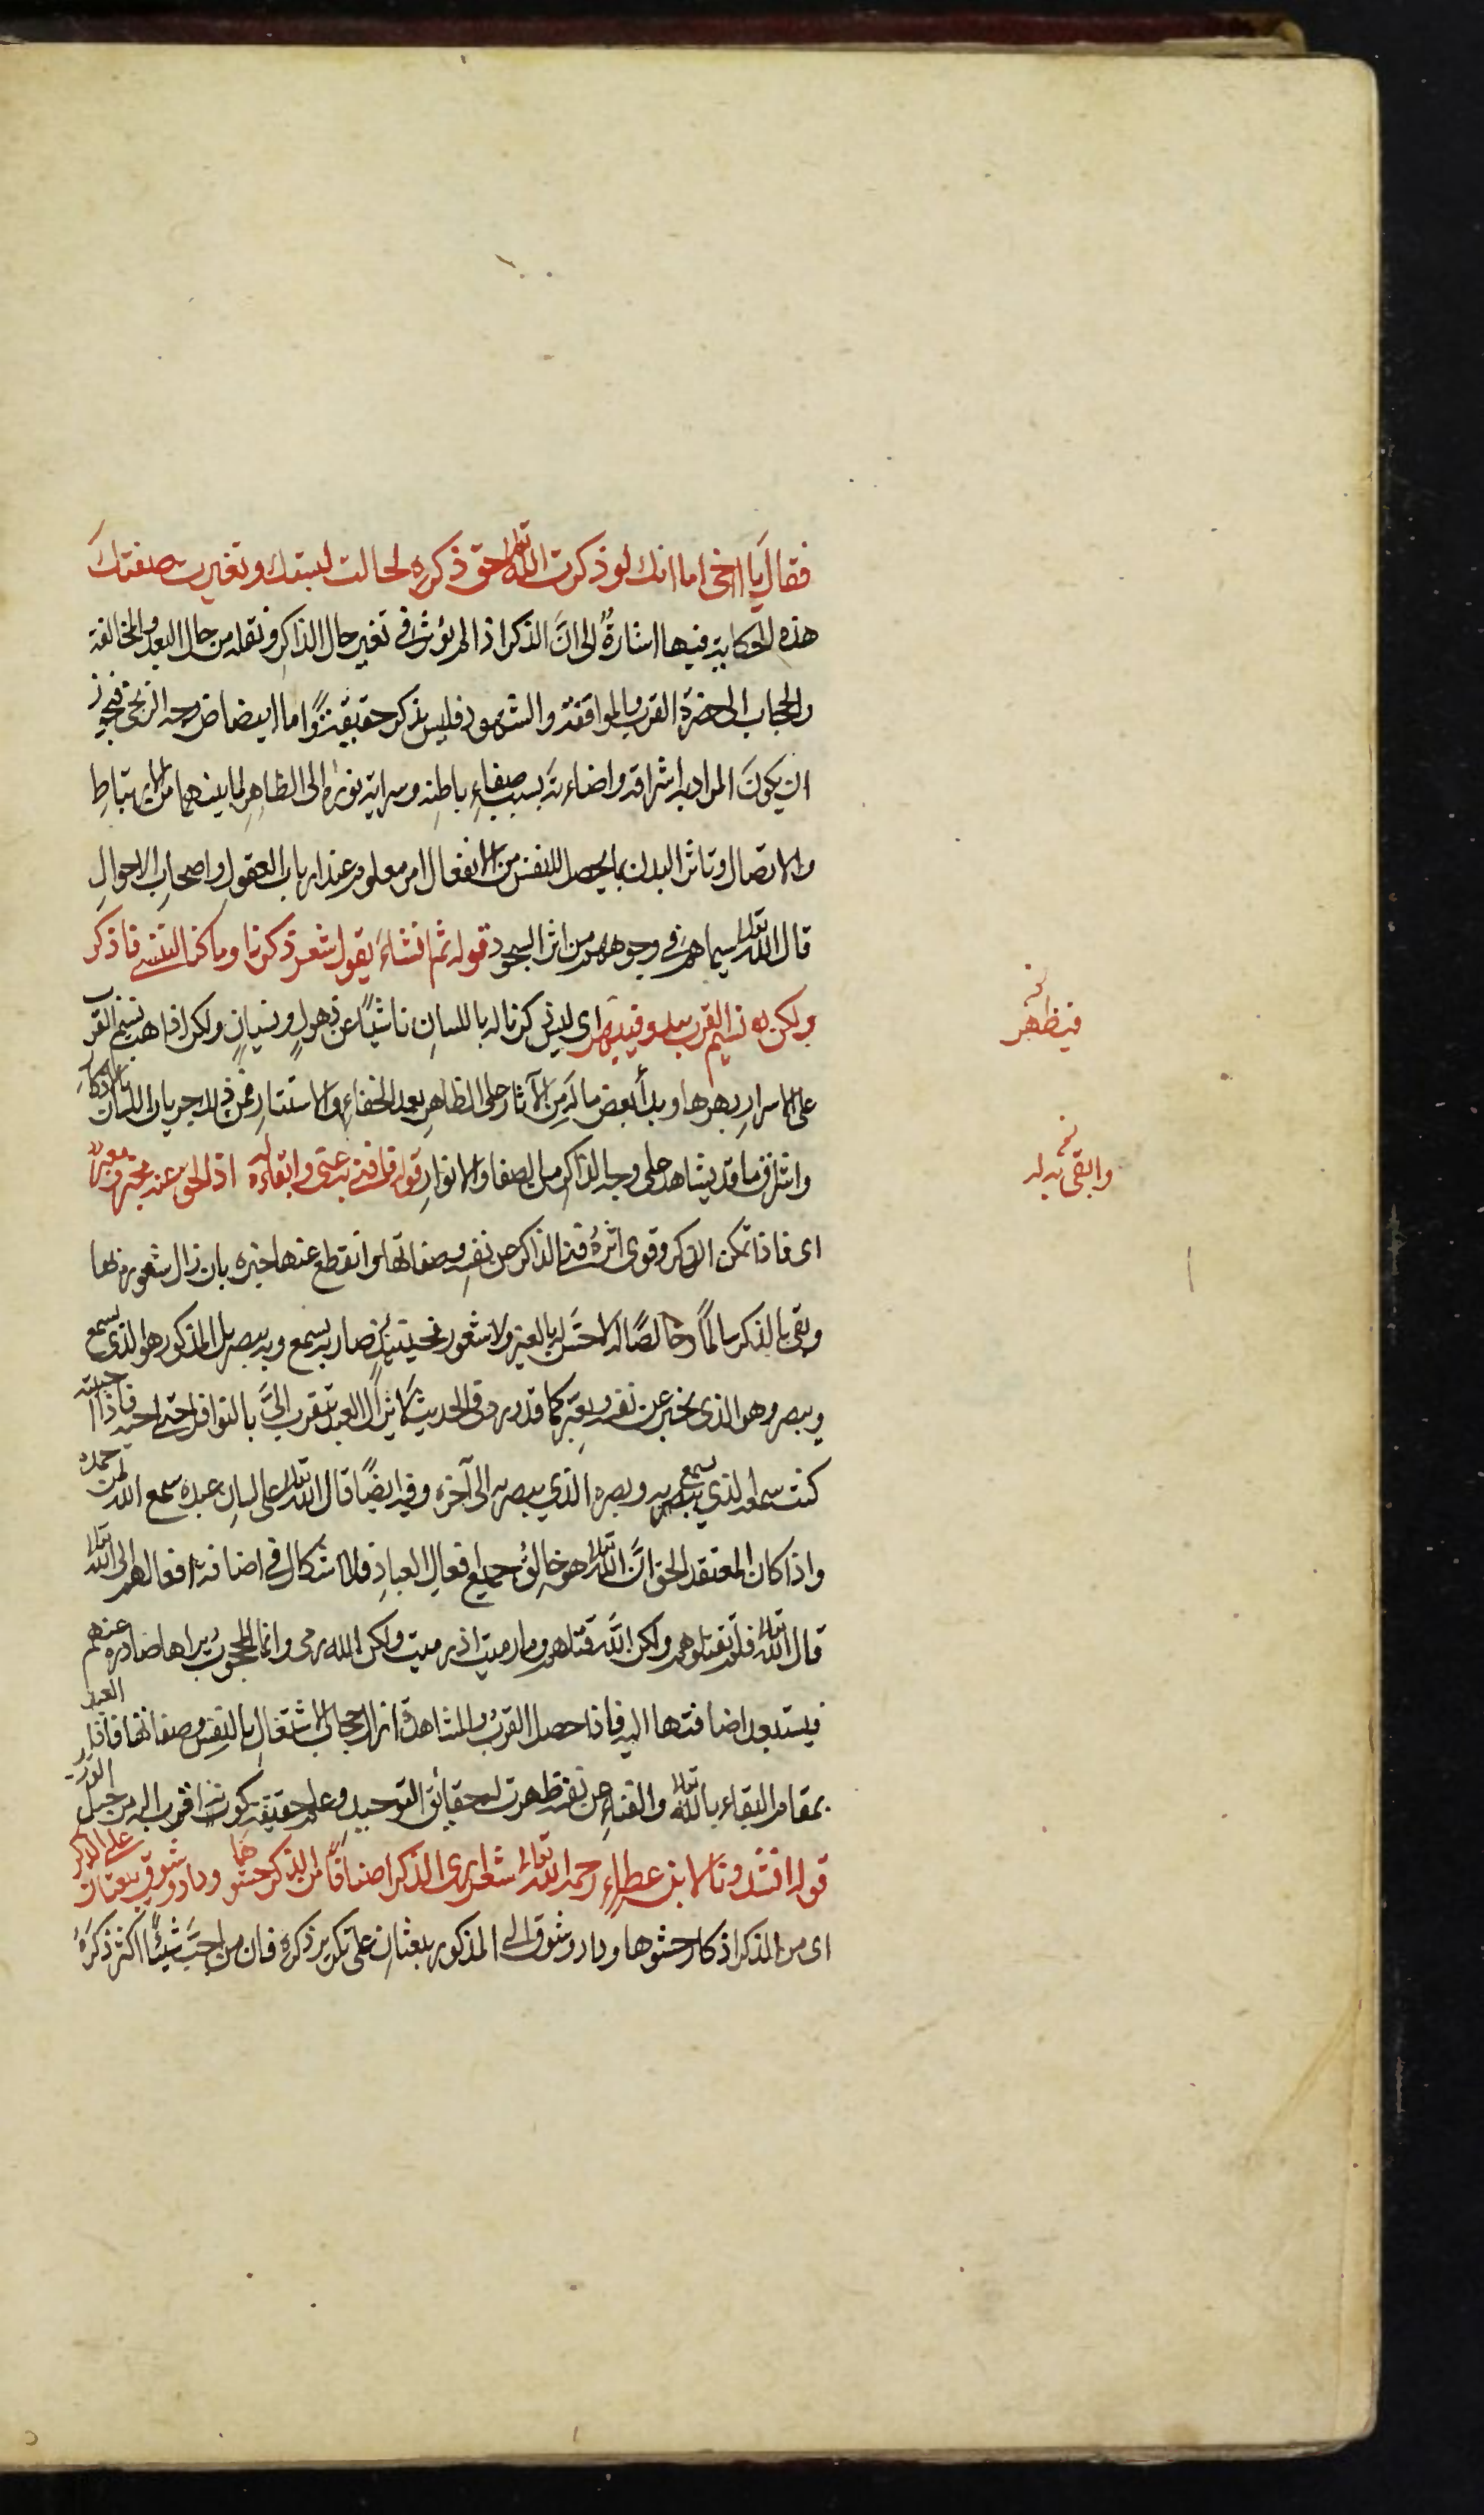 فقال يا اخى اما انك لو ذكرت الله تعالى حق ذكره لحالت لبستك وتغيرت صفتك
هذه الحكاية فيها اشارة الى انّ الذكر اذا لم يؤثر فى تغير حال الذاكر ونقله من حال البعد والمخالفة
والحجاب الى حضرة القرب والموافقة والشهود فليس بذكر حقيقة واما ابيضاض وجه الزنجى فيجوز
ان يكون المراد به اشراقه واضاءته بسبب صفاء باطنه وسراية نوره الى الظاهر لما بينهما من الارتباط
والاتصال وتاثر البدن بما يحصل للنفس من الانفعال امر معلوم عند ارباب العقول واصحاب الاحوال
قال الله تعالى سيماهم فى وجوههم من اثر السجود قوله ثم انشاء يقول شعر ذكرنا وما كنا لننسى فنذكر
ولكن نسيم القرب يبدو فيبهر اى ليس ذكرنا له باللسان ناشيًا عن ذهول ونسيان ولكن اذا هب نسيم القرب
على الاسرار بهرها وبدأ بعض ماله من الآثار على الظاهر بعد الخفاء والاستتار فمن ذلك جريان اللسان بالاذكار
واشراق ما قد يشاهد على وجه الذاكر من الصفا والانوار قوله فافنى به عنى وابقى له به اذ الحق عنه مخبر ومعبر
اى فاذا تمكن الذكر وقوى اثره فنى الذاكر عن نفسه وصفاتها وانقطع عنها خبره بان زال شعوره بها
وبقى بالذكر سالمًا وخالصًا لا حسّ له بالغير ولا شعور فحينئذ صار به يسمع وبه يبصر بل المذكور هو الذى يسمع
ويبصر وهو الذى يخبر عن نفسه ويعبّر كما قد ورد فى الحديث لا يزال العبد يتقرب الىّ بالنوافل حتى احبه فاذا احببته
كنت سمعه الذي يسمع به وبصره الذي يبصر به الى آخره وفيه ايضًا قال الله تعالى على لسان عبده سمع الله لمن حمده
واذا كان المعتقد الحق انّ الله تعالى هو خالق جميع افعال العباد فلا اشكال فى اضافة افعالهم الى الله تعالى
قال الله تعالى فلم تقتلوهم ولكن الله قتلهم وما رميت اذ رميت ولكن الله رمى وانما المحجوب يراها صادرة عنهم
فيستبعد اضافتها اليه فاذا حصل القرب والمشاهدة انزال حجاب الاشتغال بالنفس وصفاتها فاذا قام العبد
بمقام البقاء بالله تعالى والفناء عن نفسه ظهرت له حقائق التوحيد وعلم حقيقة كونه اقرب اليه من حبل الوريد
قوله انشدونا لابن عطاء رحمه الله تعالى شعر ارى الذكر اصنافًا من الذكر حشوها وداد وشوق يبعثان على الذكر
اى من الذكر اذكار حشوها وداد وشوق الى المذكور يبعثان على تكرير ذكره فان من احبّ شيئًا اكثر ذكره
فيظهر
وابقى به له